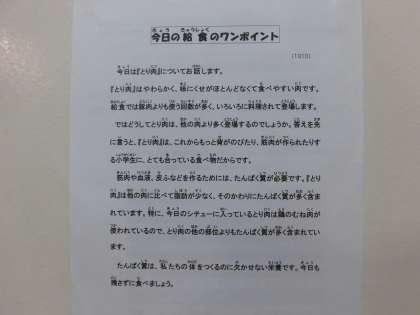 今日の給食のワンポイント
(1010)
今日は『とり肉』についてお話します。
『とり肉』はやわらかく、味にくせがほとんどなくて食べやすい肉です。
給食では豚肉よりも使う回数が多く、いろいろに料理されて登場します。
ではどうしてとり肉は、他の肉より多く登場するのでしょうか。答えを先
に言うと、『とり肉』は、これからもっと背がのびたり、筋肉が作られたりす
る小学生に、とても合っている食べ物だからです。
筋肉や血液、皮ふなどを作るためには、たんぱく質が必要です。『とり
肉』は他の肉に比べて脂肪が少なく、そのかわりにたんぱく質が多く含ま
れています。特に、今日のシチューに入っているとり肉は鶏のむね肉が
使われているので、とり肉の他の部位よりもたんぱく質が多く含まれてい
ます。
たんぱく質は、私たちの体をつくるのに欠かせない栄養です。今日も
残さずに食べましょう。